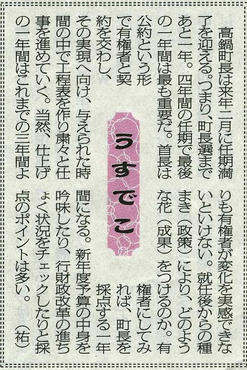 うすでこ
高鍋町長は来年二月に任期満
了を迎える。つまり、町長選まで
あと一年。四年間の任期で最後
の一年間は最も重要だ。首長は
公約という形
で有権者と契
約を交わし、
その実現へ向け、与えられた時
間の中で工程表を作り粛々と仕
事を進めていく。当然、仕上げ
の一年間はこれまでの三年間よ
りも有権者が変化を実感できな
いといけない。就任後からの種
まき（政策）により、どのよう
な花（成果）をつけるのか。有
権者にしてみ
れば、町長を
採点する一年
間になる。新年度予算の中身を
吟味したり、行財政改革の進ち
ょく状況をチェックしたりと採
点のポイントは多い。　（祐）